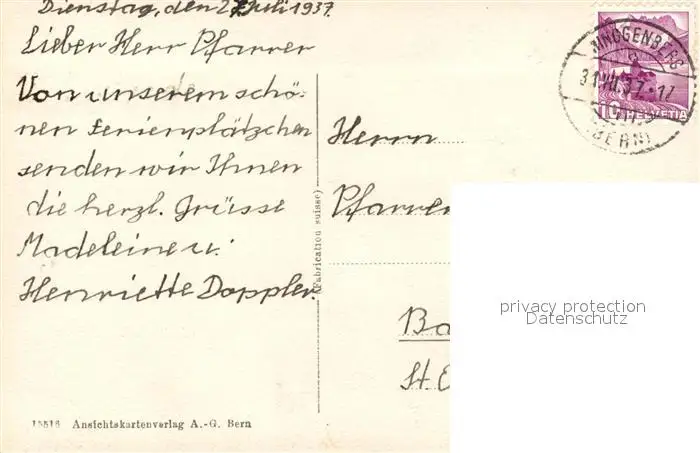 Dienstag, den 27 Juli 1937.
Lieber Herr Pfarrer
Von unserem schö-
nen Ferienplätzchen
senden wir Ihnen
die herzl. Grüsse
Madeleine u.
Henriette Doppler.
(Fabrication suisse)
15516 Ansichtskartenverlag A.-G. Bern
RINGGENBERG
31.VII.37-17
(BERN)
10 HELVETIA
Herrn
Pfarrer
Ba
St.
privacy protection
Datenschutz